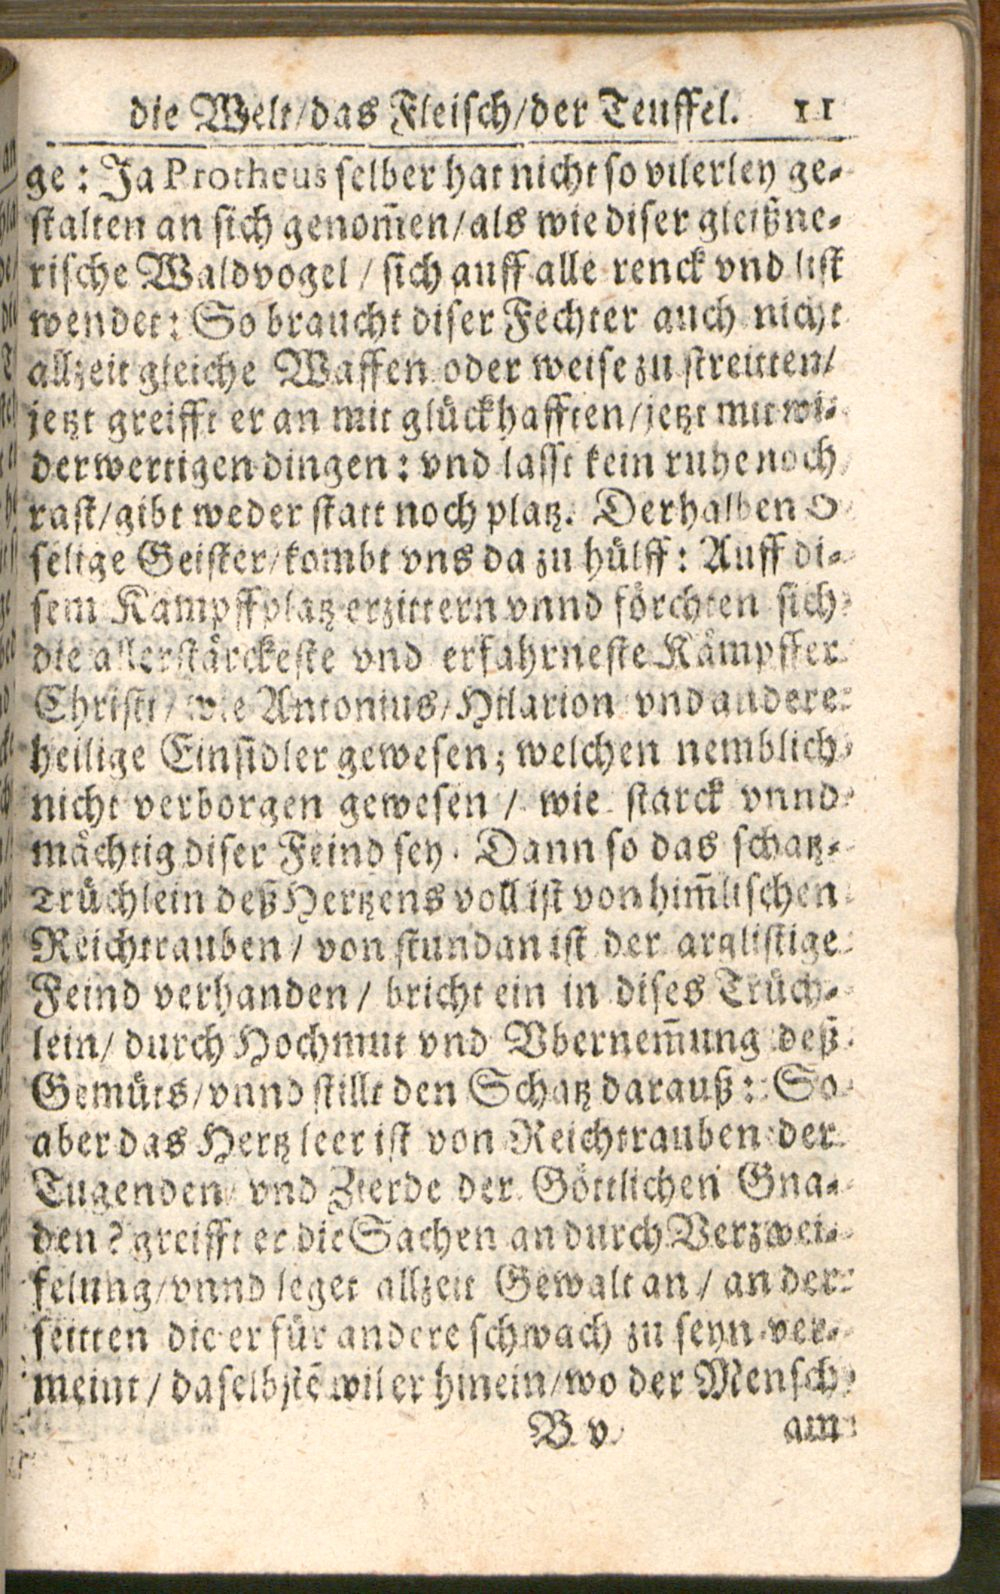 die Welt/das Fleisch/der Teuffel. 11
ge: Ja Protheus selber hat nicht so vilerley ge-
stalten an sich genom̃en/als wie diser gleißne-
rische Waldvogel / sich auff alle renck vnd list
wendet: So braucht diser Fechter auch nicht
allzeit gleiche Waffen oder weise zu streitten/
jetzt greifft er an mit glückhafften/jetzt mit wi-
derwertigen dingen: vnd lasst kein ruhe noch
rast/gibt weder statt noch platz. Derhalben O
selige Geister/kombt vns da zu hülff: Auff di-
sem Kampffplatz erzittern vnnd förchten sich
die allerstärckeste vnd erfahrneste Kämpffer
Christi/ wie Antonius/Hilarion vnd andere
heilige Einsidler gewesen; welchen nemblich
nicht verborgen gewesen / wie starck vnnd
mächtig diser Feind sey. Dann so das schatz-
Trüchlein deß Hertzens voll ist von him̃lischen
Reichtrauben / von stundan ist der arglistige
Feind verhanden / bricht ein in dises Trüch-
lein/ durch Hochmut vnd Vbernem̃ung deß
Gemüts/vnnd stillt den Schatz darauß: So
aber das Hertz leer ist von Reichtrauben der
Tugenden vnd Zierde der Göttlichen Gna-
den? greifft er die Sachen an durch Verzwei-
felung/vnnd leget allzeit Gewalt an / an der
seitten die er für andere schwach zu seyn ver-
meint / daselbstē wil er hinein/wo der Mensch
B v am